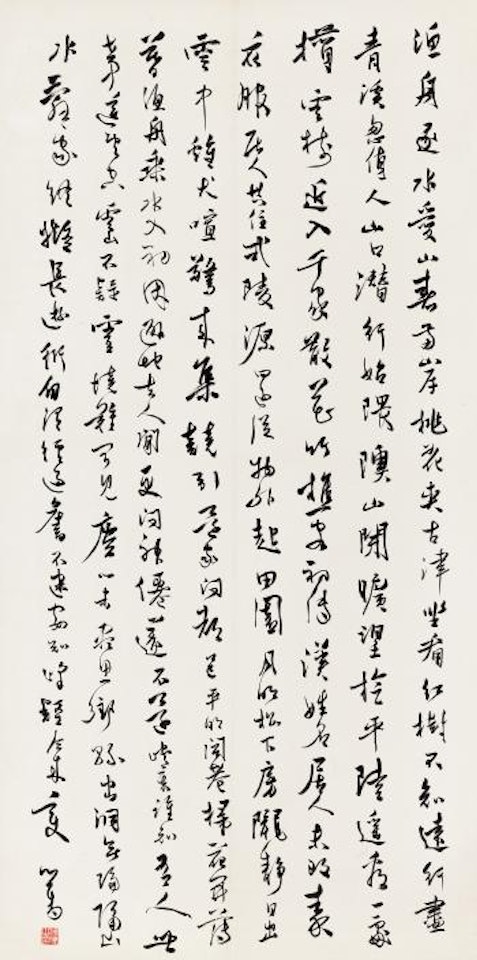 漁舟逐水愛山春兩岸桃花夾古津坐看紅樹不知遠行盡
青溪忽值人山口潛行始隈隩山開曠望旋平陸遙看一處
攢雲樹近入千家散花竹樵客初傳漢姓名居人未改秦
衣服居人共住武陵源還從物外起田園月明松下房櫳靜日出
雲中雞犬喧驚來集競引還家問都邑平明閭巷掃花開薄
暮漁舟乘水入初因避地去人間更問神僊遂不還峽裏誰知有人
遙望空雲山不疑靈境難見塵心未盡思鄉縣出洞無論隔山
水辭家終擬長遊衍自謂經過舊不迷安知峰壑今來變 心畬